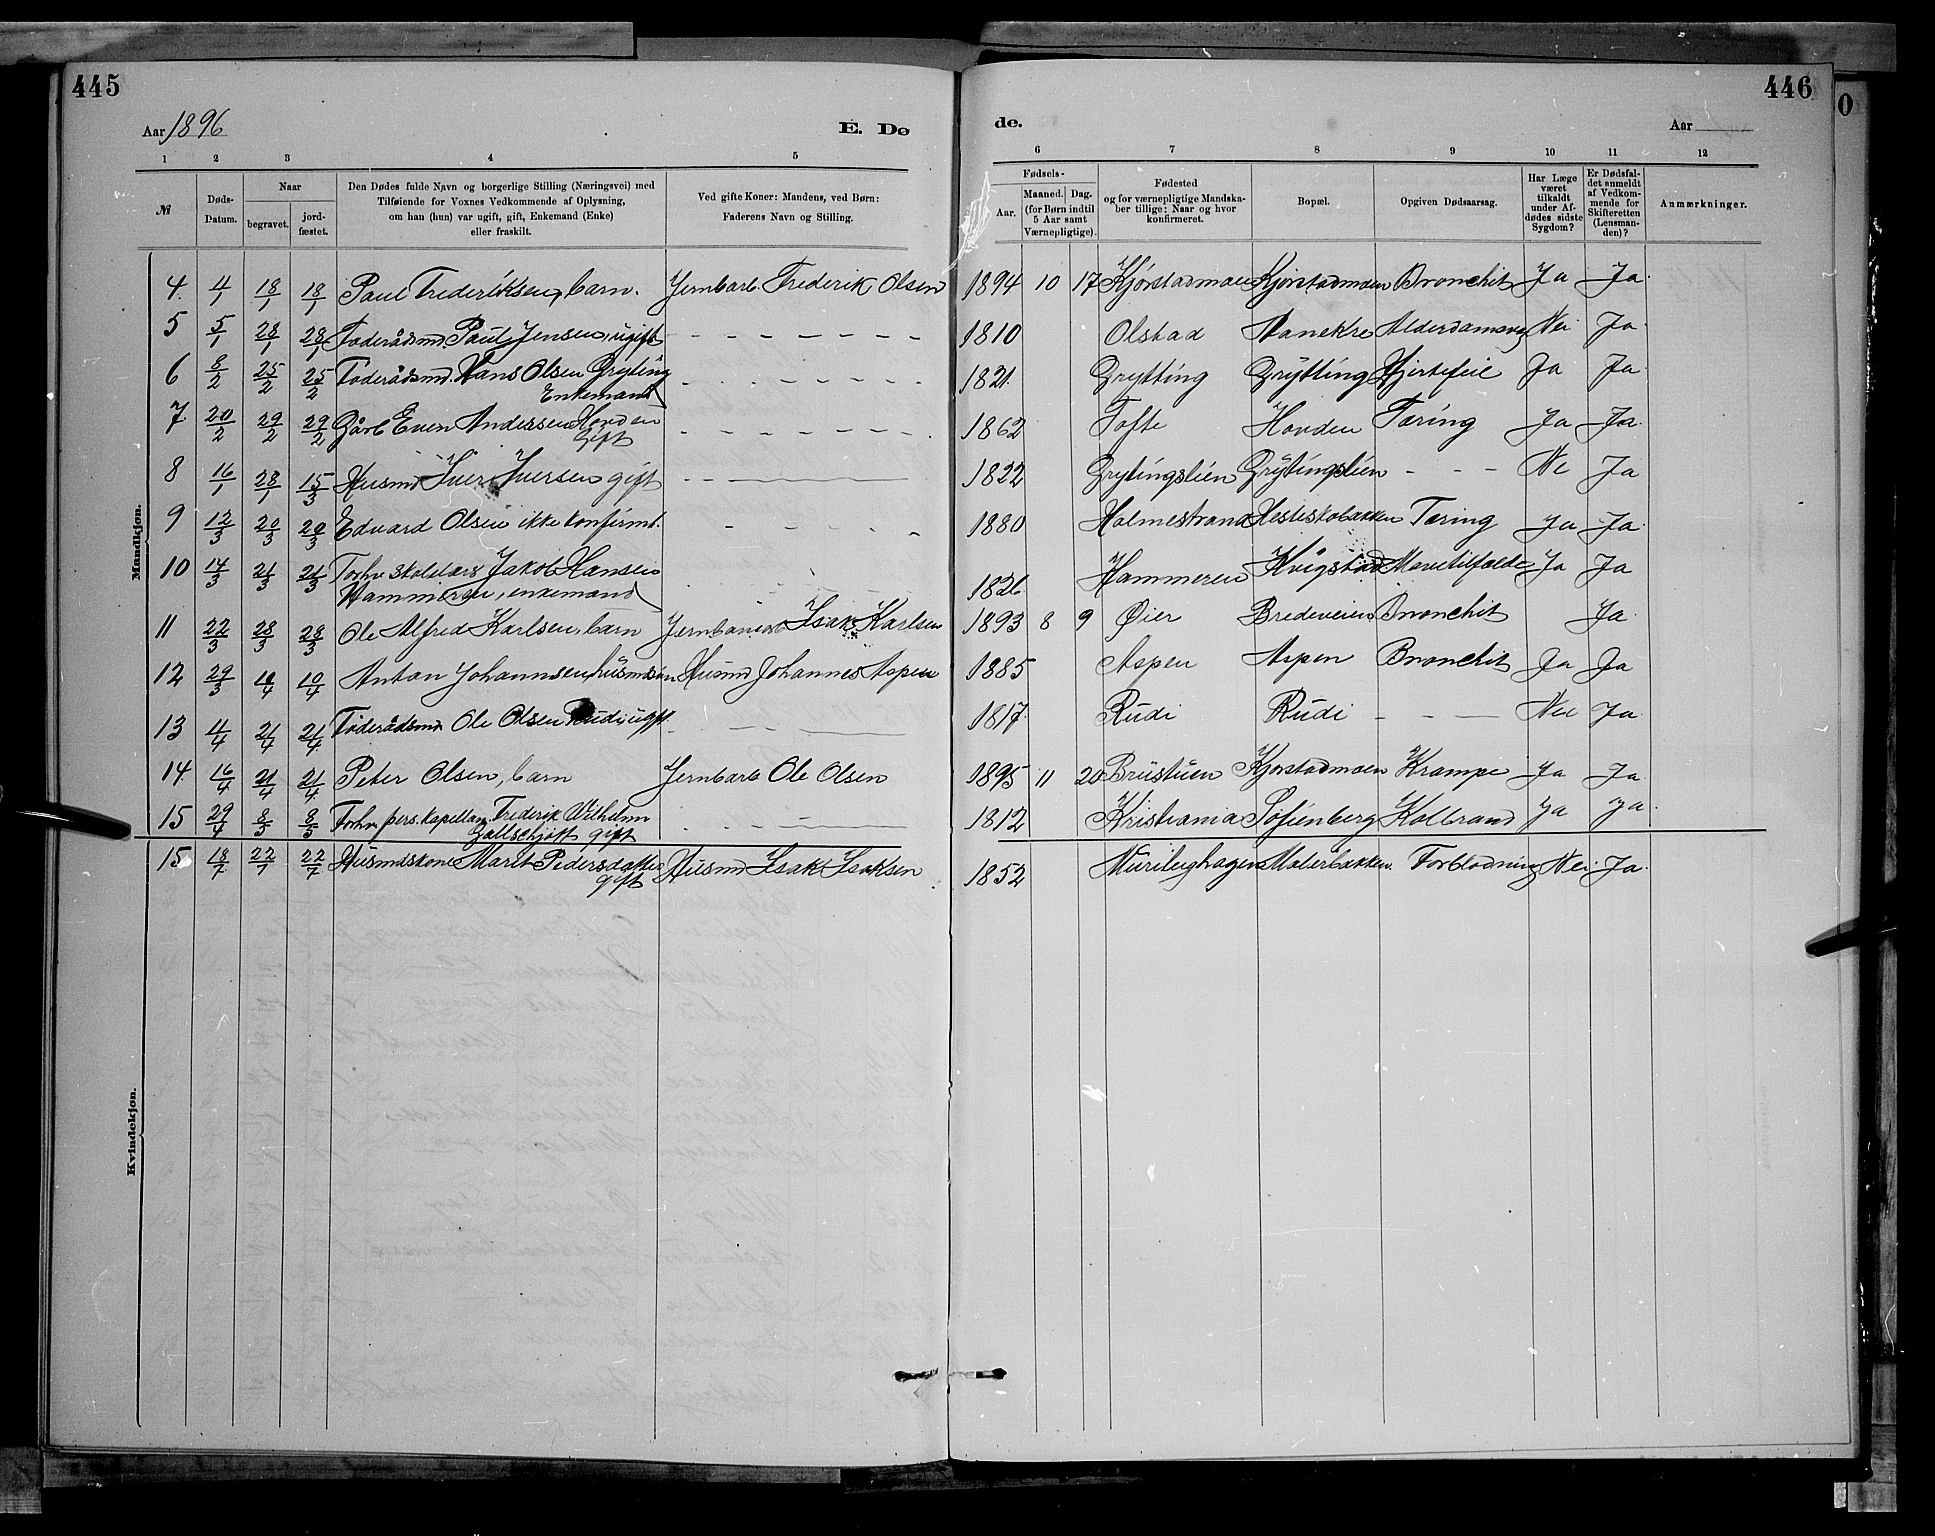 445
446
0
Aar 1896
E. Dø
de.
Aar
1 2 3 4 5 6 7 8 9 10 11 12
№
Døds-Datum.
Naar
begravet.
jord-fæstet.
Den Dødes fulde Navn og borgerlige Stilling (Næringsvei) med
Tilføiende for Voxnes Vedkommende af Oplysning,
om han (hun) var ugift, gift, Enkemand (Enke)
eller fraskilt.
Ved gifte Koner: Mandens, ved Børn:
Faderens Navn og Stilling.
Fødsels-
Aar.
Maaned. Dag.
(for Børn indtil
5 Aar samt
Værnepligtige).
Fødested
og for værnepligtige Mandska-
ber tillige: Naar og hvor
konfirmeret.
Bopæl.
Opgiven Dødsaarsag.
Har Læge
været
tilkaldt
under Af-
dødes sidste
Sygdom?
Er Dødsfal-
det anmeldt
af Vedkom-
mende for
Skifteretten
(Lensman-
den)?
Anmærkninger.
Mandkjøn.
4. 4/1 18/1 18/1 Paul Frederiksen, barn. Jernbarb. Frederik Olsen 1894 10 17 Kjørstadmoen Kjørstadmoen Bronchit Ja Ja
5 5/1 28/1 28/1 Føderådsmd. Paul Jensen, ugift 1810 Olstad Alderdomssvag Nei Ja
6 8/2 25/2 25/2 Føderådsmd. Hans Olsen Grytting
Enkemand 1821. Grytting Grytting Hjertefeil Ja Ja
7. 20/2 29/2 29/2 Gårb Even Andersen Hovden
Gift 1862 Tofte Hovden Tæring Ja Ja
8 16/1 28/1 15/3 Husmd Iver Iversen gift 1822 Grytingslien Grytingslien - - - Nei Ja
9 12/3 20/3 20/3 Edvard Olsen ikke konfirmt. 1880 Holmestrand Hesteskobakken Tæring Ja Ja
10 14/3 21/3 21/3 Forhv skolelærer Jakob Hansen
Hammeren, enkemand 1826 Hammeren Kvigstad Mavetilfælde Ja Ja
11 22/3 28/3 28/3 Ole Alfred Karlsen, barn Isak Karlsen 1893 8 9 Øier Bredeveien Bronchit Ja
12 29/3 10/4 10/4 Anton Johannsen husmdsøn Husmd Johannes Aspen 1885 Aspen Aspen Bronchit Ja Ja
13 4/4 21/4 21/4 Føderådsmd Ole Olsen Rudi ugift 1817. Rudi Rudi - - - Nei Ja
14. 16/4 21/4 21/4 Peter Olsen, barn Jernbarb Ole Olsen 1895 11 20 Brustuen Kjørstadmoen Krampe Ja Ja
15 29/4 8/5 8/5 Forhv pers. kapellan Frederik Vilhelm
gift 1812 Kristiania Sofienberg Kolbrand Ja Ja
Kvindekjøn.
15 18/7 22/7 22/7 Husmdskone Marit Pedersdatter
gift Husmd Isak Isaksen 1852 Malerbakken. Forblødning Nei Ja